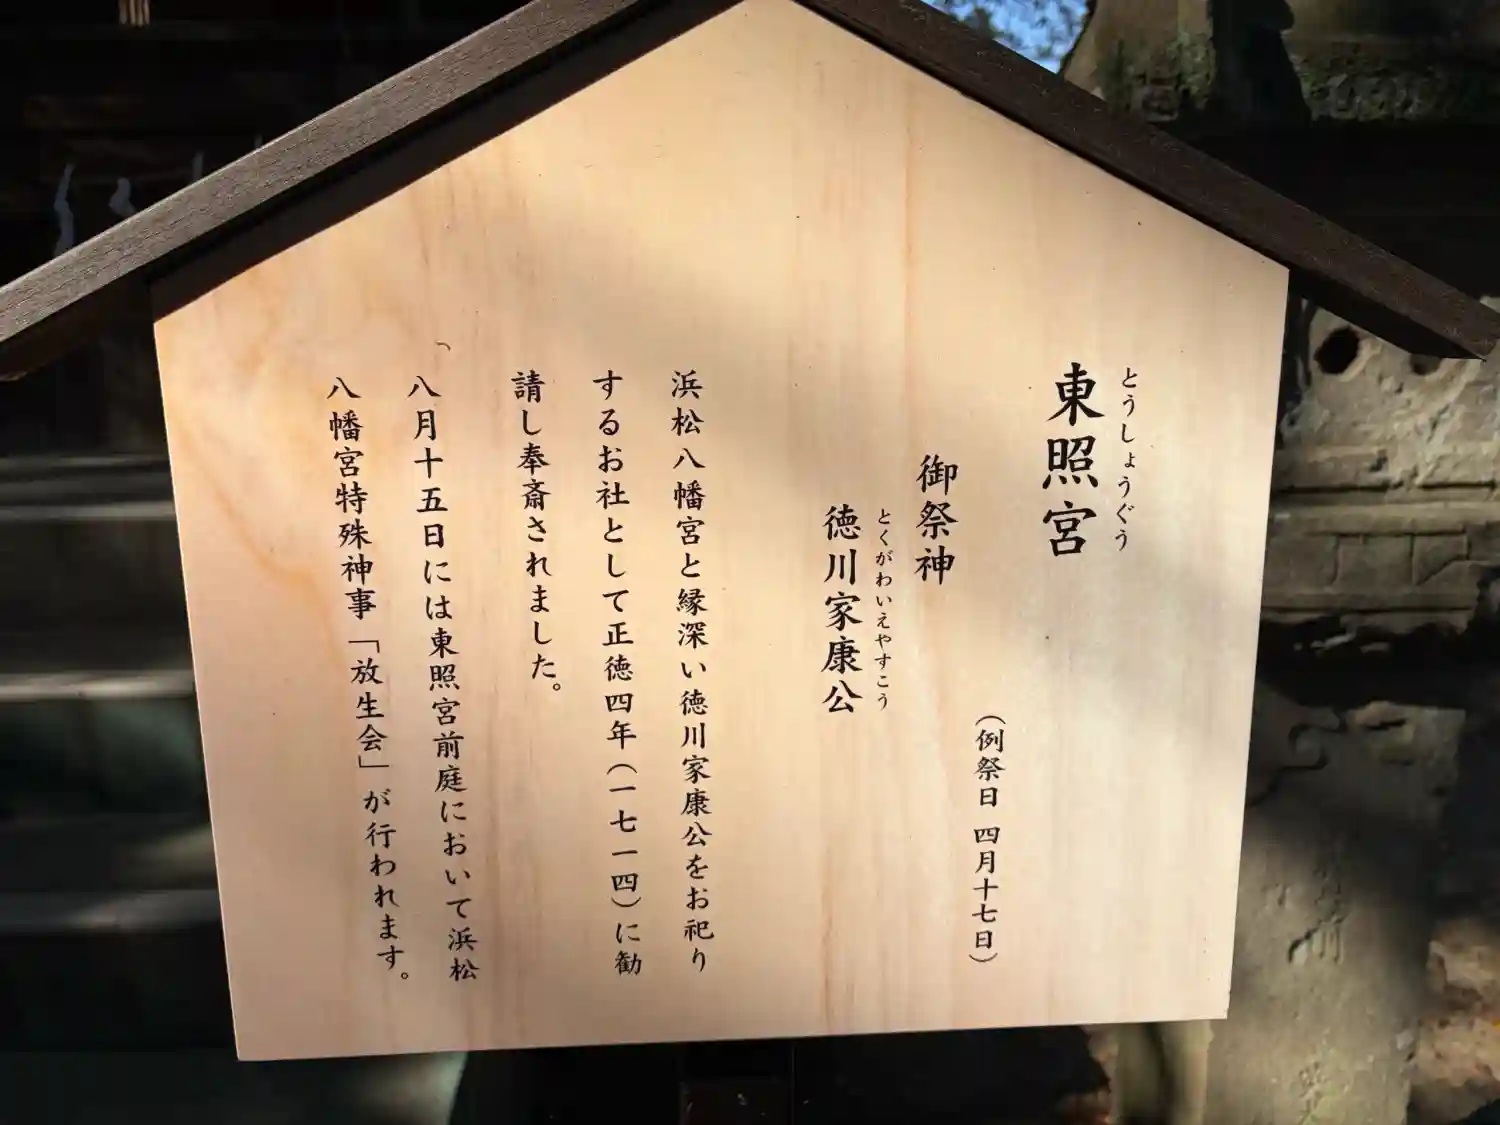 とうしょうぐう
東照宮
（例祭日 四月十七日）
御祭神
とくがわいえやすこう
徳川家康公
浜松八幡宮と縁深い徳川家康公をお祀り
するお社として正徳四年（一七一四）に勧
請し奉斎されました。
八月十五日には東照宮前庭において浜松
八幡宮特殊神事「放生会」が行われます。